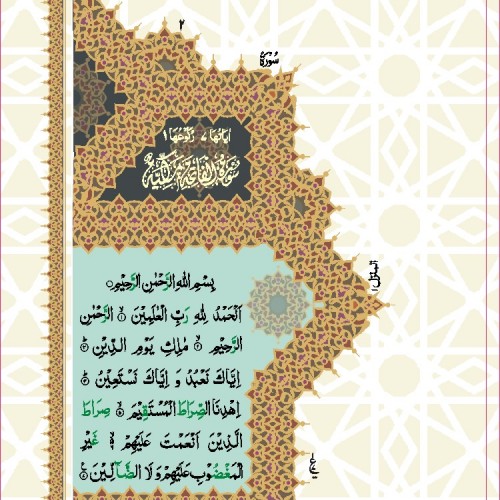 ٢
سُوْرَةُ
اٰیَاتُهَا ٧ رُكُوْعُهَا ١
سُوْرَةُ الْفَاتِحَةِ مَكِّيَّةٌ
بِسْمِ اللّٰهِ الرَّحْمٰنِ الرَّحِيْمِ
اَلْحَمْدُ لِلّٰهِ رَبِّ الْعٰلَمِيْنَ ۙ﴿١﴾ الرَّحْمٰنِ
الرَّحِيْمِ ۙ﴿٢﴾ مٰلِكِ يَوْمِ الدِّيْنِ ؕ﴿٣﴾
اِيَّاكَ نَعْبُدُ وَ اِيَّاكَ نَسْتَعِيْنُ ؕ﴿٤﴾
اِهْدِنَا الصِّرَاطَ الْمُسْتَقِيْمَ ۙ﴿٥﴾ صِرَاطَ
الَّذِيْنَ اَنْعَمْتَ عَلَيْهِمْ ۙ﴿٦﴾ غَيْرِ
الْمَغْضُوْبِ عَلَيْهِمْ وَ لَا الضَّآلِّيْنَ ﴿٧﴾
المنزل ١
ع